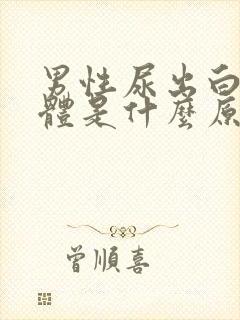 男性尿出白
體是什麼原
曾順喜